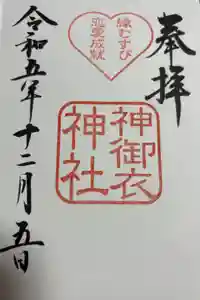 奉拝
縁むすび
恋愛成就
神御衣
神社
令和五年十二月五日